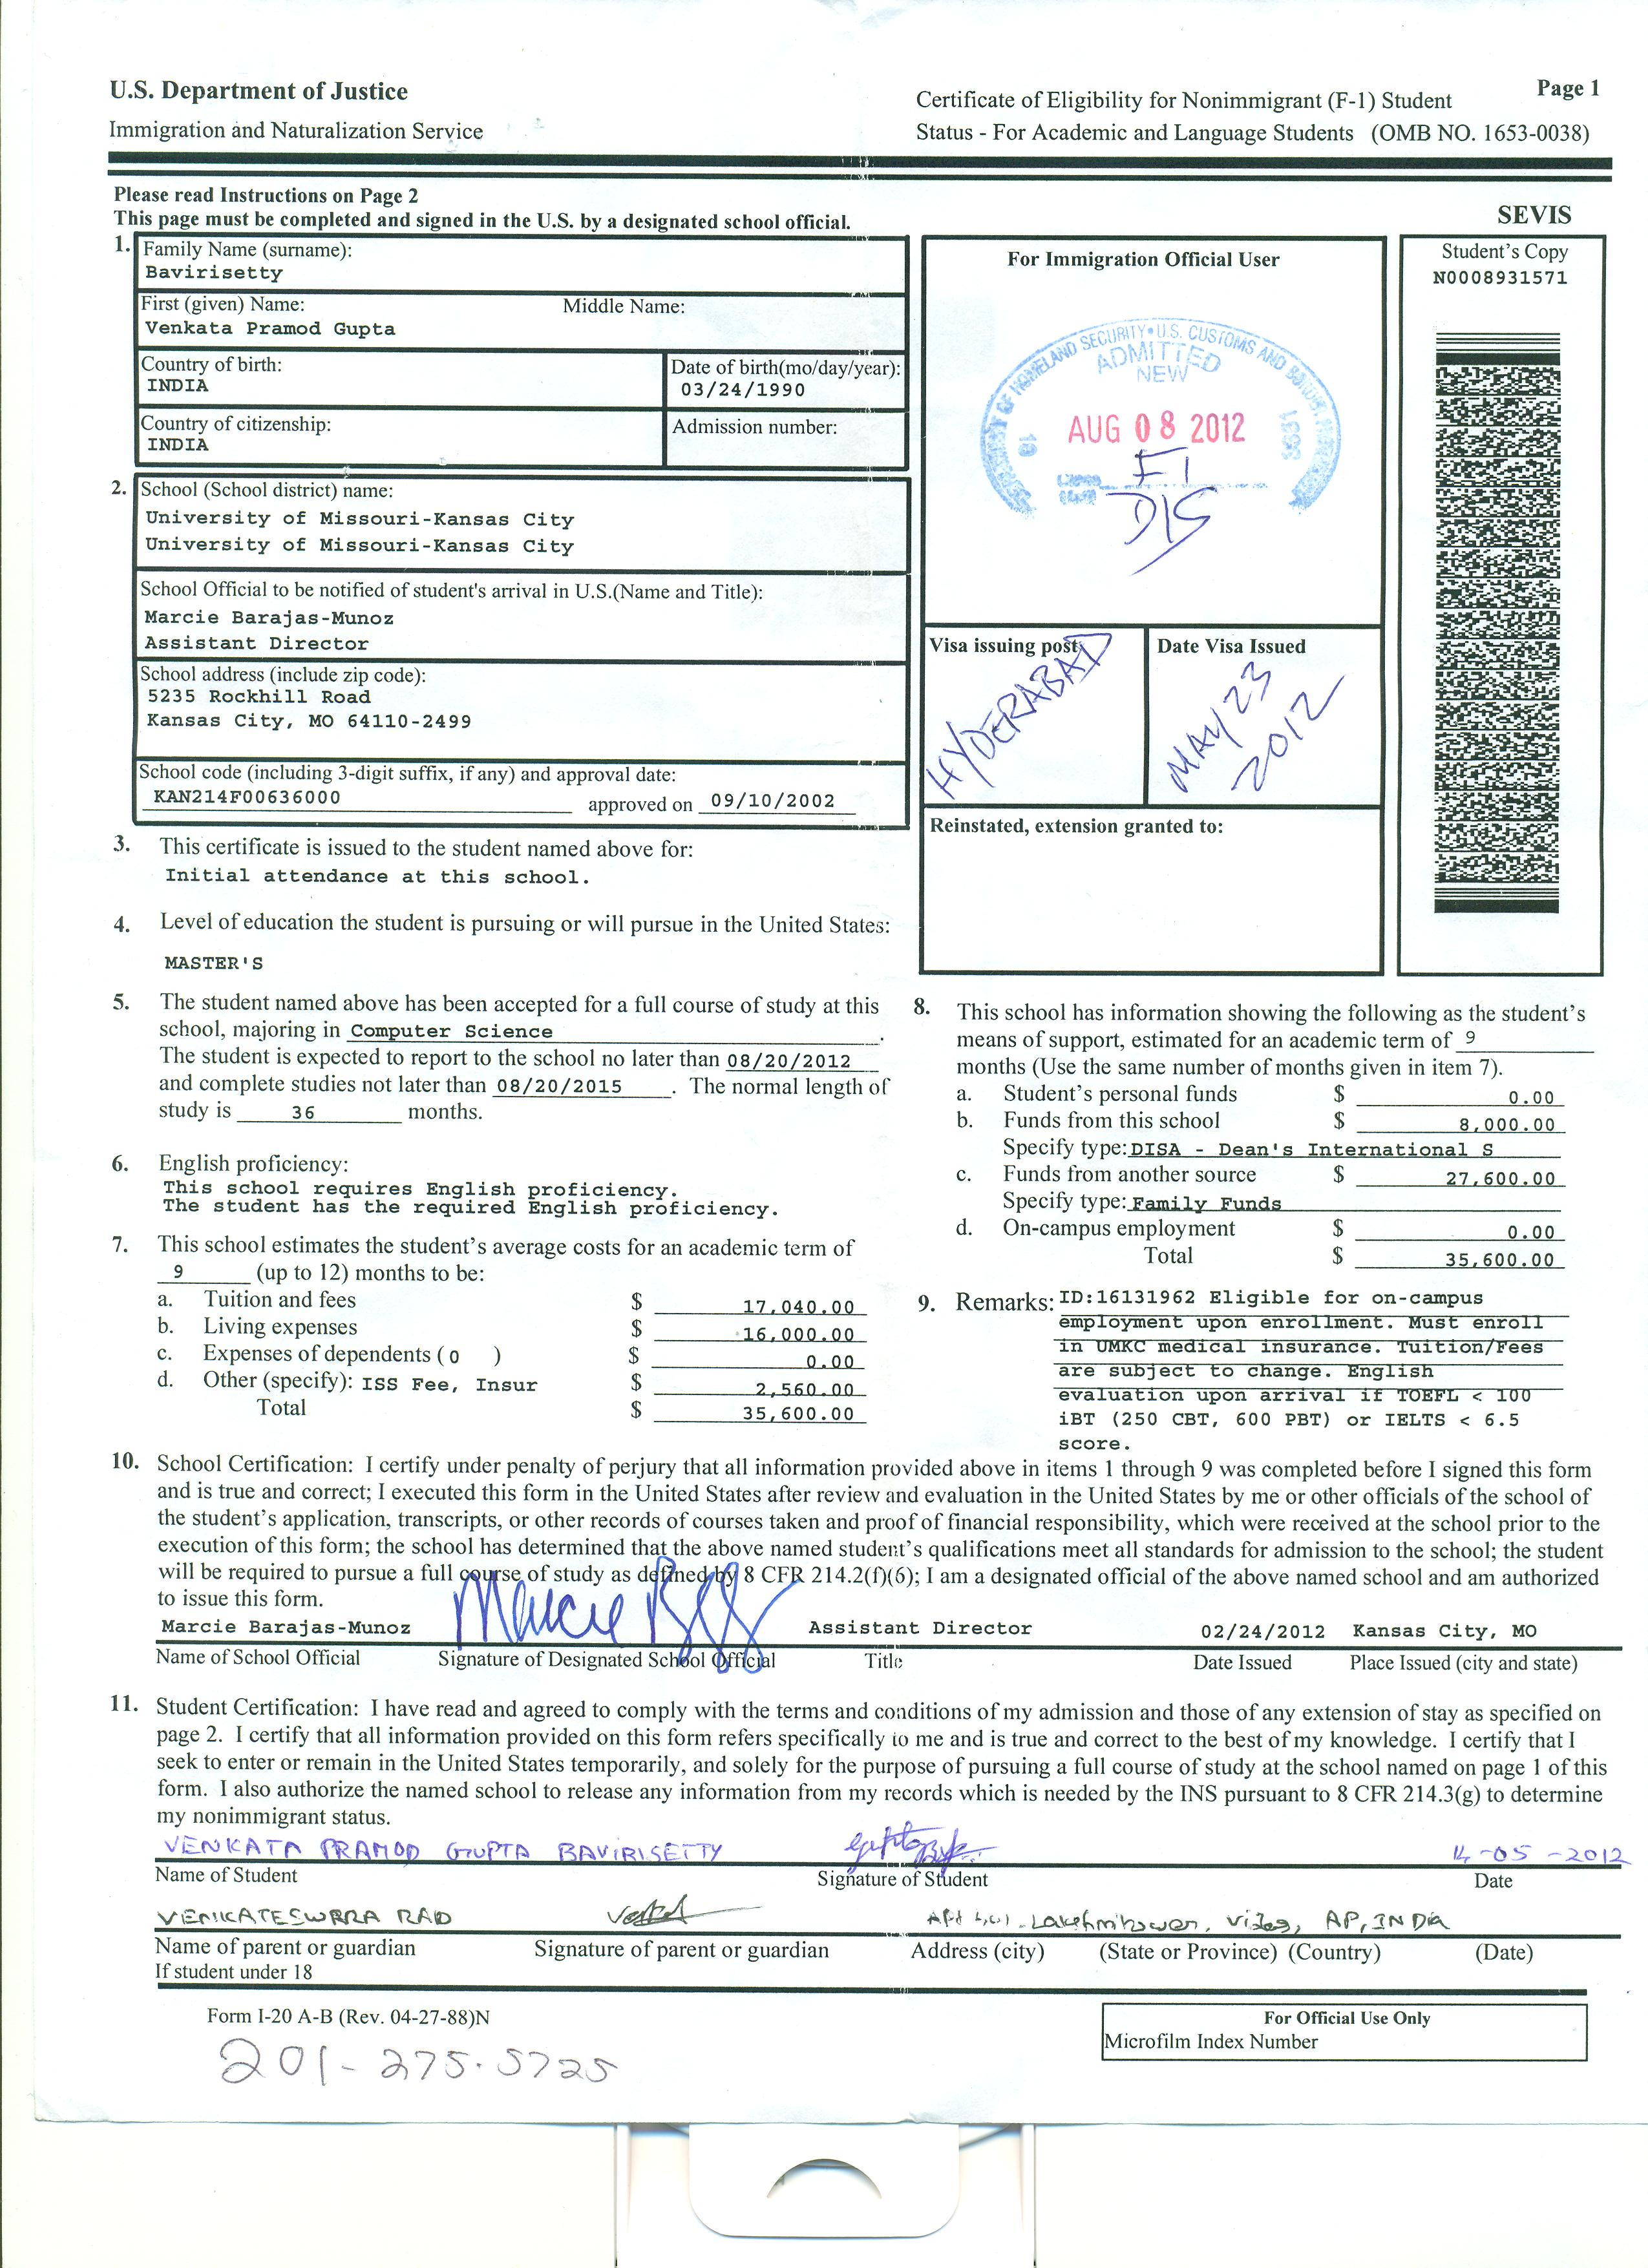 U.S. Department of Justice
Immigration and Naturalization Service
Certificate of Eligibility for Nonimmigrant (F-1) Student
Status - For Academic and Language Students (OMB NO. 1653-0038)
Page 1
Please read Instructions on Page 2
This page must be completed and signed in the U.S. by a designated school official.
SEVIS
1. Family Name (surname):
Bavirisetty
First (given) Name: Middle Name:
Venkata Pramod Gupta
Country of birth:
INDIA
Date of birth(mo/day/year):
03/24/1990
Country of citizenship:
INDIA
Admission number:
For Immigration Official User
ADMITTED
NEW
AUG 08 2012
F1
D/S
Student's Copy
N0008931571
2. School (School district) name:
University of Missouri-Kansas City
University of Missouri-Kansas City
School Official to be notified of student's arrival in U.S.(Name and Title):
Marcie Barajas-Munoz
Assistant Director
School address (include zip code):
5235 Rockhill Road
Kansas City, MO 64110-2499
School code (including 3-digit suffix, if any) and approval date:
KAN214F00636000 approved on 09/10/2002
Visa issuing post
HYDERABAD
Date Visa Issued
MAY 23
2012
Reinstated, extension granted to:
3. This certificate is issued to the student named above for:
Initial attendance at this school.
4. Level of education the student is pursuing or will pursue in the United States:
MASTER'S
5. The student named above has been accepted for a full course of study at this
school, majoring in Computer Science .
The student is expected to report to the school no later than 08/20/2012
and complete studies not later than 08/20/2015 . The normal length of
study is 36 months.
6. English proficiency:
This school requires English proficiency.
The student has the required English proficiency.
7. This school estimates the student's average costs for an academic term of
9 (up to 12) months to be:
a. Tuition and fees $ 17,040.00
b. Living expenses $ 16,000.00
c. Expenses of dependents ( 0 ) $ 0.00
d. Other (specify): ISS Fee, Insur $ 2,560.00
Total $ 35,600.00
8. This school has information showing the following as the student's
means of support, estimated for an academic term of 9
months (Use the same number of months given in item 7).
a. Student's personal funds $ 0.00
b. Funds from this school $ 8,000.00
Specify type: DISA - Dean's International S
c. Funds from another source $ 27,600.00
Specify type: Family Funds
d. On-campus employment $ 0.00
Total $ 35,600.00
9. Remarks: ID:16131962 Eligible for on-campus
employment upon enrollment. Must enroll
in UMKC medical insurance. Tuition/Fees
are subject to change. English
evaluation upon arrival if TOEFL < 100
iBT (250 CBT, 600 PBT) or IELTS < 6.5
score.
10. School Certification: I certify under penalty of perjury that all information provided above in items 1 through 9 was completed before I signed this form
and is true and correct; I executed this form in the United States after review and evaluation in the United States by me or other officials of the school of
the student's application, transcripts, or other records of courses taken and proof of financial responsibility, which were received at the school prior to the
execution of this form; the school has determined that the above named student's qualifications meet all standards for admission to the school; the student
will be required to pursue a full course of study as defined by 8 CFR 214.2(f)(6); I am a designated official of the above named school and am authorized
to issue this form.
Marcie Barajas-Munoz Marcie Assistant Director 02/24/2012 Kansas City, MO
Name of School Official Signature of Designated School Official Title Date Issued Place Issued (city and state)
11. Student Certification: I have read and agreed to comply with the terms and conditions of my admission and those of any extension of stay as specified on
page 2. I certify that all information provided on this form refers specifically to me and is true and correct to the best of my knowledge. I certify that I
seek to enter or remain in the United States temporarily, and solely for the purpose of pursuing a full course of study at the school named on page 1 of this
form. I also authorize the named school to release any information from my records which is needed by the INS pursuant to 8 CFR 214.3(g) to determine
my nonimmigrant status.
VENKATA PRAMOD GUPTA BAVIRISETTY 14-05-2012
Name of Student Signature of Student Date
VENKATESWRRA RAO AP, INDIA
Name of parent or guardian Signature of parent or guardian Address (city) (State or Province) (Country) (Date)
If student under 18
Form I-20 A-B (Rev. 04-27-88)N
For Official Use Only
Microfilm Index Number
201-275-5725